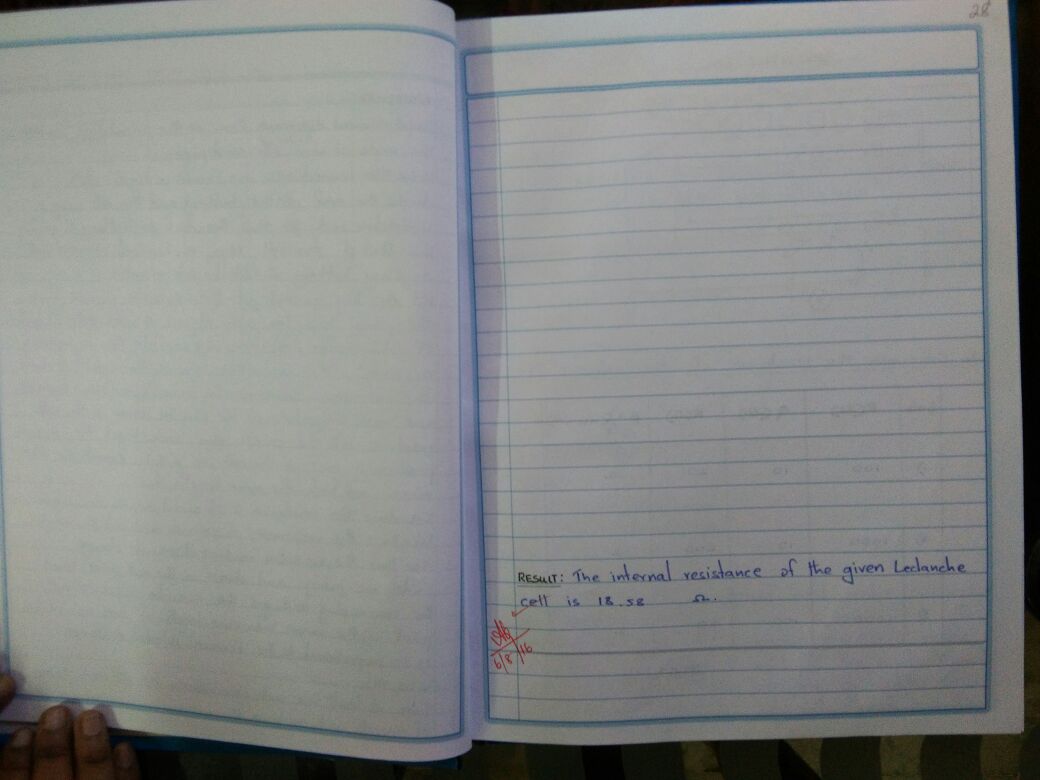 28
RESULT: The internal resistance of the given Leclanche
cell is 18.58 Ω.
6/8/16